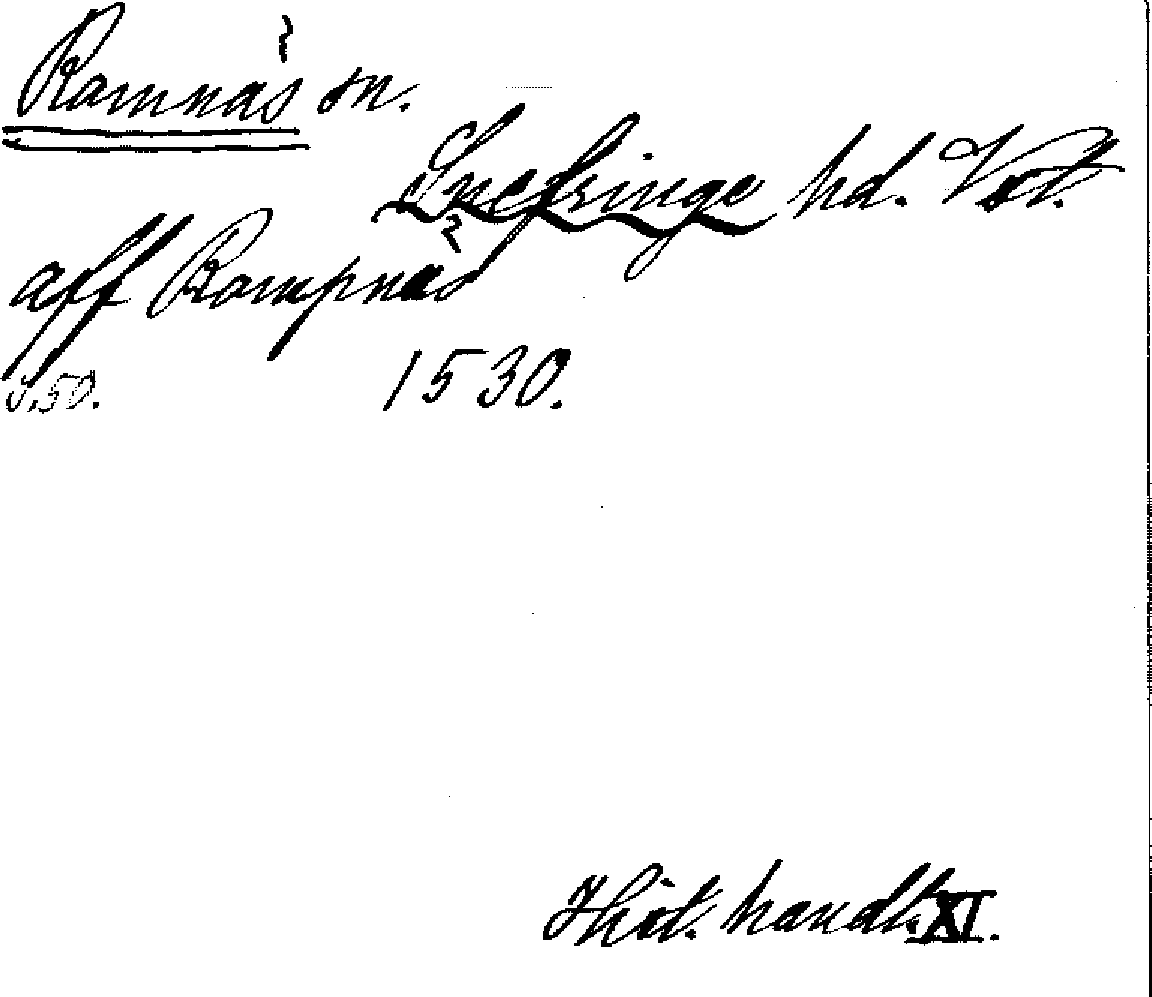 Ramnäs sn.
Snefringe hd. Vstl.
aff Rampnäs
s. 50. 1530.
Hist. handl. XI.